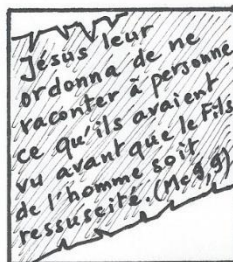 Jésus leur
ordonna de ne
raconter à personne
ce qu'ils avaient
vu avant que le Fils
de l'homme soit
ressuscité. (Mc 9,9)